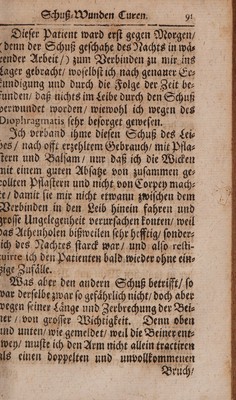 Schuß-Wunden Curen. 91
Dieser Patient ward erst gegen Morgen/
(denn der Schuß geschahe des Nachts in wä-
render Arbeit/) zum Verbinden zu mir ins
Lager gebracht/ woselbst ich nach genauer Er-
kundigung und durch die Folge der Zeit be-
funden/ daß nichts im Leibe durch den Schuß
verwundet worden/ wiewohl ich wegen des
Diophragmatis sehr besorget gewesen.
Ich verband ihme diesen Schuß des Lei-
bes/ nach offt erzehltem Gebrauch/ mit Pfla-
stern und Balsam/ nur daß ich die Wicken
mit einem guten Absatze von zusammen ge-
rollten Pflastern und nicht von Corpey mach-
te/ damit sie mir nicht etwann zwischen dem
Verbinden in den Leib hinein fahren und
grosse Ungelegenheit verursachen konten/ weil
das Athenholen bißweilen sehr hefftig/ sonder-
lich des Nachts starck war/ und also resti-
tuirte ich den Patienten bald wieder ohne ein-
tzige Zufälle.
Was aber den andern Schuß betrifft/ so
war derselbe zwar so gefährlich nicht/ doch aber
wegen seiner Länge und Zerbrechung der Bei-
ner/ von grosser Wichtigkeit. Denn oben
und unten/ wie gemeldet/ weil die Beiner ent-
zwey/ muste ich den Arm nicht allein tractiren
als einen doppelten und unvollkommenen
Bruch/